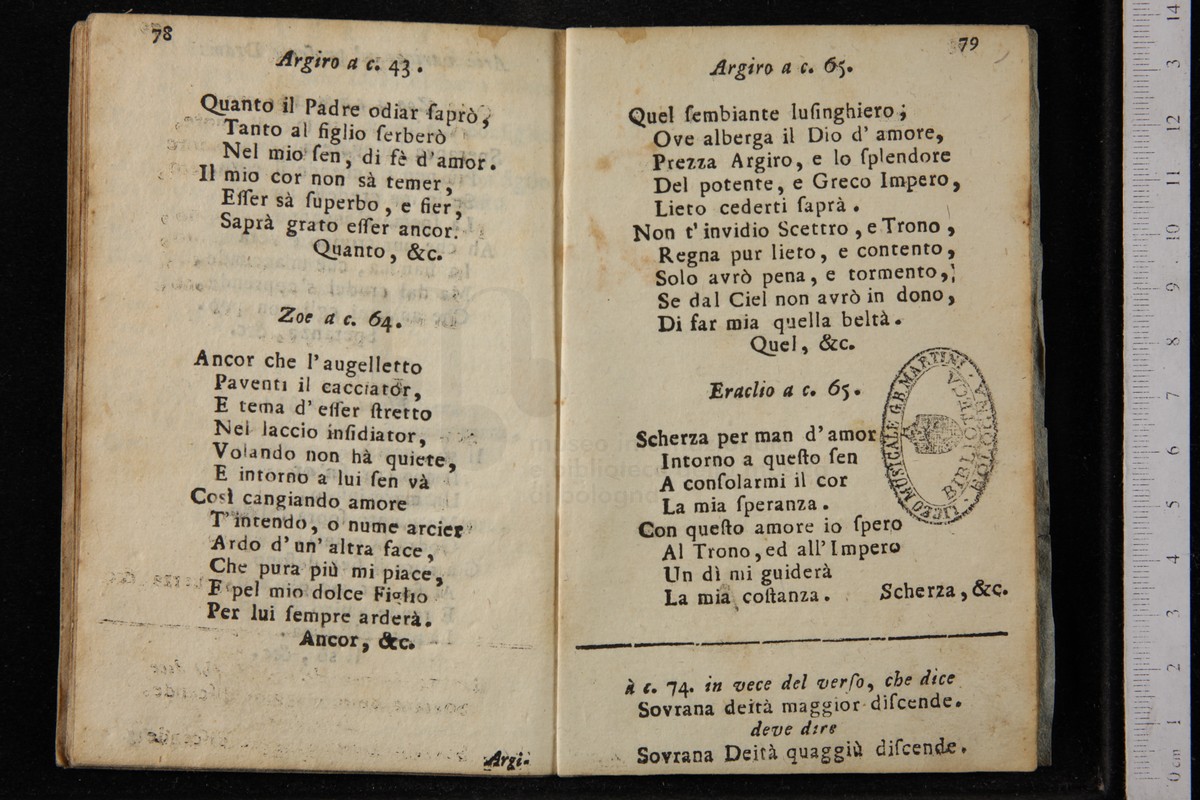 78
Argiro a c. 43.
Quanto il Padre odiar ſaprò,
Tanto al figlio ſerberò
Nel mio ſen, di fè d'amor.
Il mio cor non sà temer,
Eſſer sà ſuperbo, e fier,
Saprà grato eſſer ancor.
Quanto, &c.
Zoe a c. 64.
Ancor che l'augelletto
Paventi il cacciator,
E tema d'eſſer ſtretto
Nel laccio inſidiator,
Volando non hà quiete,
E intorno a lui ſen và
Così cangiando amore
T'intendo, o nume arcier
Ardo d'un'altra face,
Che pura più mi piace,
E pel mio dolce Figlio
Per lui ſempre arderà.
Ancor, &c.
Argi-
79
Argiro a c. 65.
Quel ſembiante luſinghiero;
Ove alberga il Dio d'amore,
Prezza Argiro, e lo ſplendore
Del potente, e Greco Impero,
Lieto cederti ſaprà.
Non t'invidio Scettro, e Trono,
Regna pur lieto, e contento,
Solo avrò pena, e tormento,
Se dal Ciel non avrò in dono,
Di far mia quella beltà.
Quel, &c.
Eraclio a c. 65.
Scherza per man d'amor
Intorno a queſto ſen
A conſolarmi il cor
La mia ſperanza.
Con queſto amore io ſpero
Al Trono, ed all'Impero
Un dì mi guiderà
La mia coſtanza. Scherza, &c.
à c. 74. in vece del verſo, che dice
Sovrana deità maggior diſcende.
deve dire
Sovrana Deità quaggiù diſcende.
LICEO MUSICALE G.B. MARTINI - BOLOGNA
BIBLIOTECA
museo in
e biblioteca
di bologna
0 cm 1 2 3 4 5 6 7 8 9 10 11 12 3 14